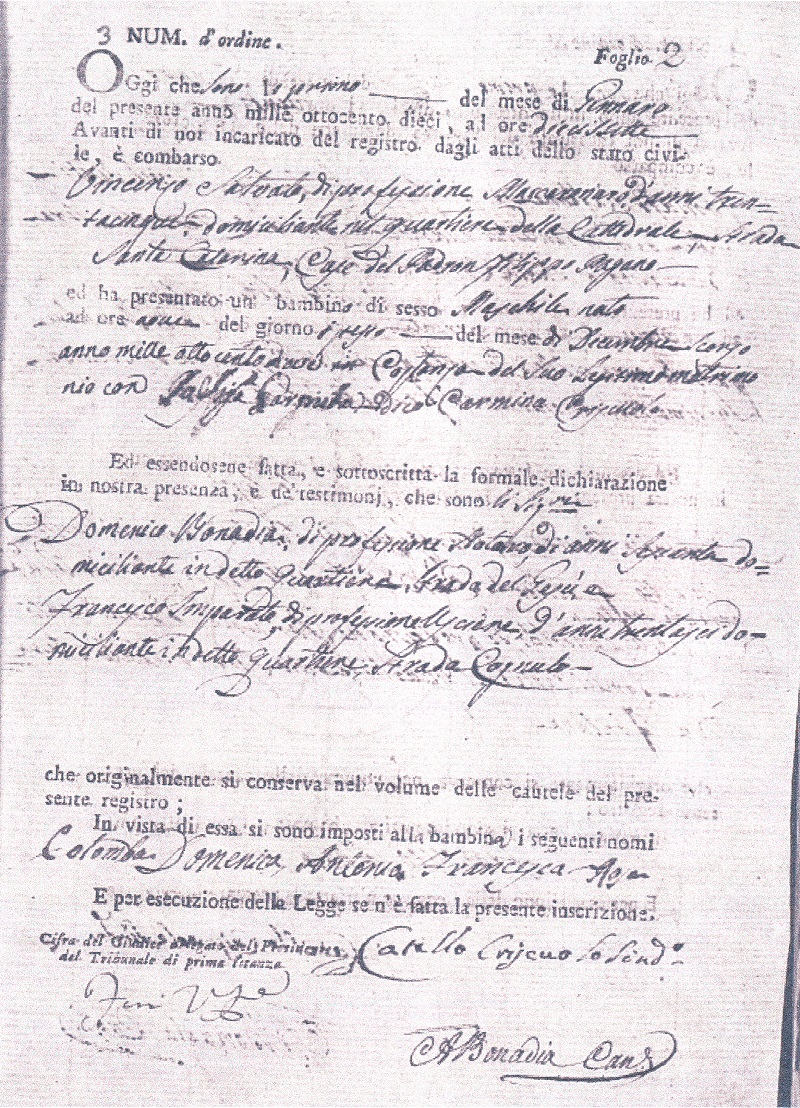 3 NUM. d'ordine.
Foglio 2
OGgi che sono il primo del mese di Gennaro
del presente anno mille ottocento dieci, ad ore diecisette
Avanti di noi incaricato del registro dagli atti dello stato civi-
le, è combarso
Vincenzo Salvato, di professione d'anni tren=
tacinque domiciliante nel quartiere della Cattedrale, Strada
Santa Catarina, Case del Padron Filippo Pagano
ed ha presentato un bambino di sesso Maschile nato
ad ore nove del giorno del mese di Dicembre
anno mille ottocento nove in Costanza del Suo legitimo matrimo
nio con Carmina Criscuolo
Ed essendosene fatta, e sottoscritta la formale dichiarazione
in nostra presenza, e de' testimonj, che sono li Sig.ri
Domenico Bonadia, di professione Notaro, di anni do=
miciliante in detto Quartiere, Strada del Gesù e
Francesco Imparato, di professione d'anni trentasei do=
miciliante in detto Quartiere Strada Cognulo
che originalmente si conserva nel volume delle cautele del pre-
sente registro;
In vista di essa si sono imposti alla bambina i seguenti nomi
Colomba Domenica Antonia Francesca
E per esecuzione della Legge se n'è fatta la presente inscrizione.
Cifra del Giudice delegato dal Presidente
del Tribunale di prima istanza
Catello Criscuolo Sind.o
ABonadia Canc.